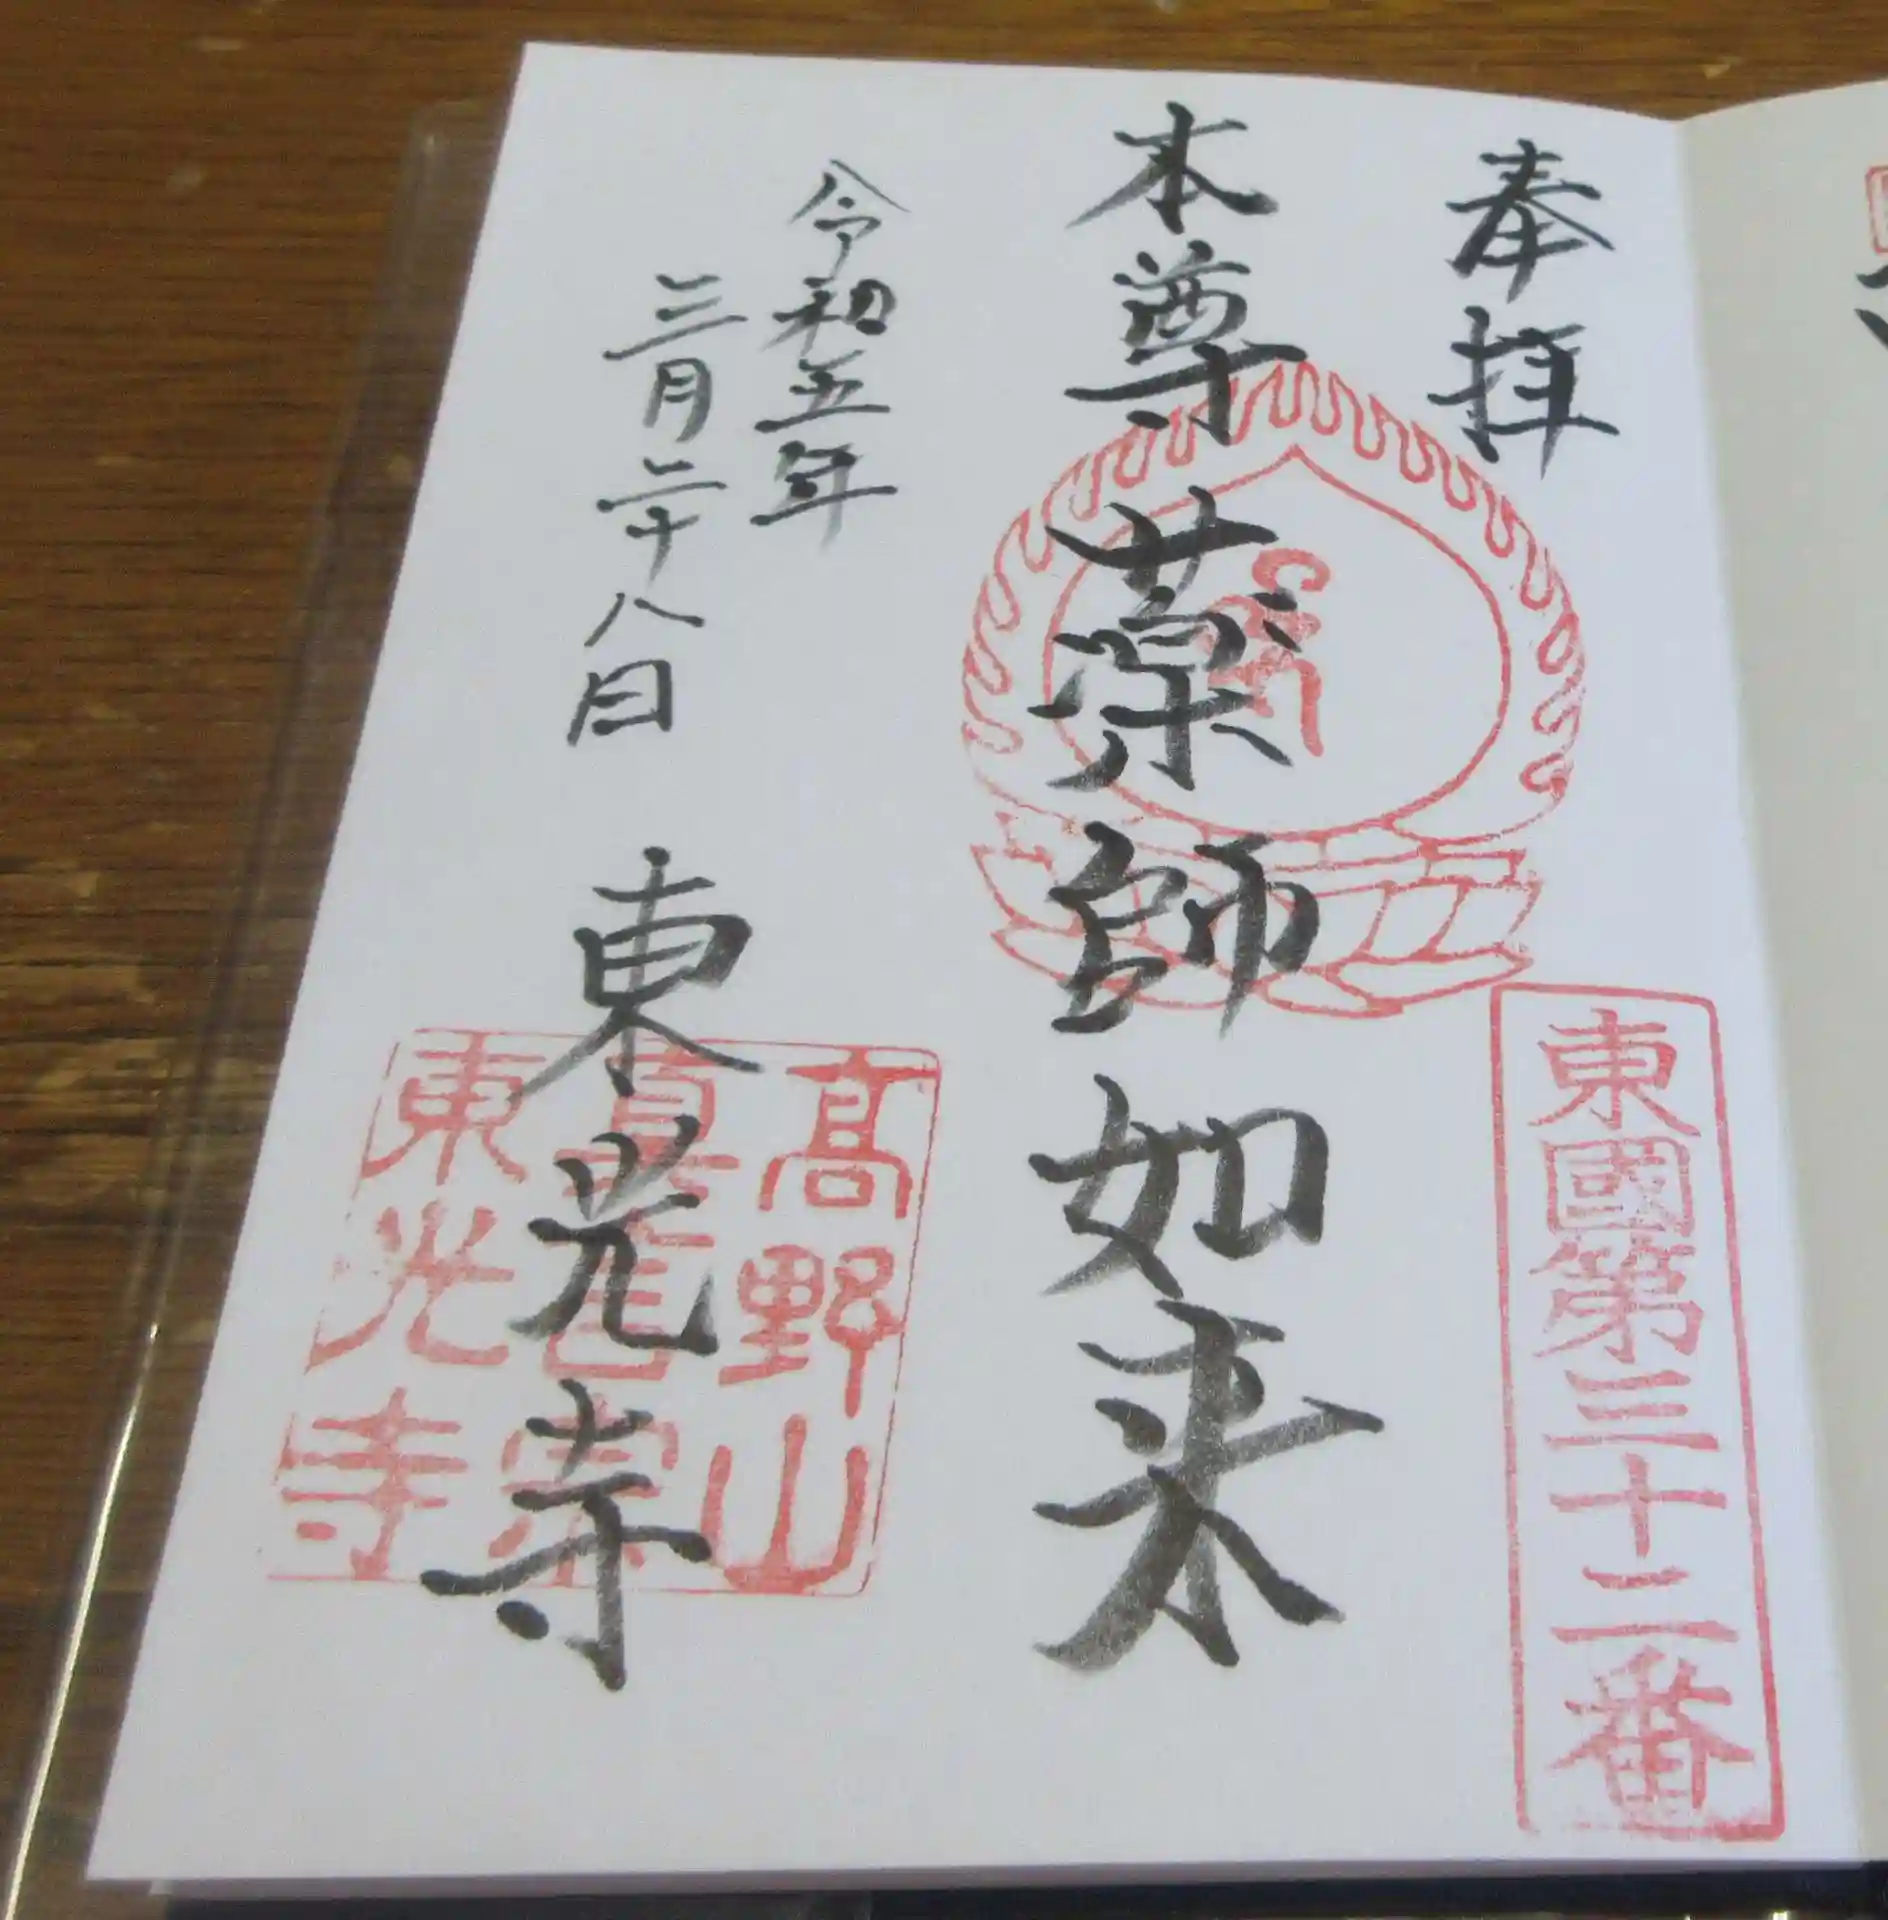 奉拝
東國第三十二番
本尊 薬師如来
令和五年
三月二十八日
東光寺
高野山
真言宗
東光寺